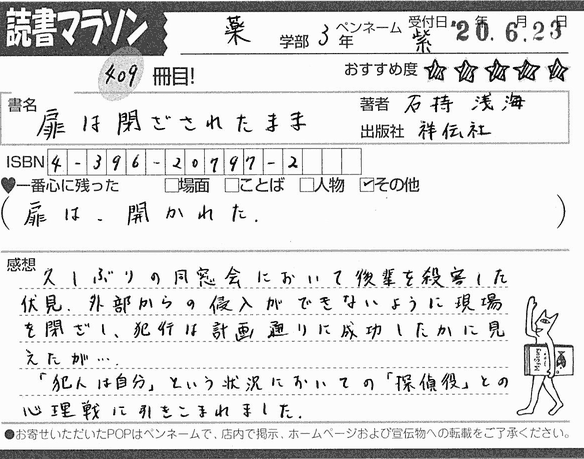 読書マラソン
薬 学部 3 年 ペンネーム 紫 受付日 '20.年6.月23日
409 冊目!
おすすめ度 ☆☆☆☆☆
書名 扉は閉ざされたまま
著者 石持 浅海
出版社 祥伝社
ISBN 4-396-20797-2
♥一番心に残った □場面 □ことば □人物 ☑その他
(扉は、開かれた.)
感想
久しぶりの同窓会において後輩を殺害した
伏見.外部からの侵入ができないように現場
を閉ざし、犯行は計画通りに成功したかに見
えたが….
「犯人は自分」という状況においての「探偵役」との
心理戦に引きこまれました.
●お寄せいただいたPOPはペンネームで、店内で掲示、ホームページおよび宣伝物への転載をご了承ください。